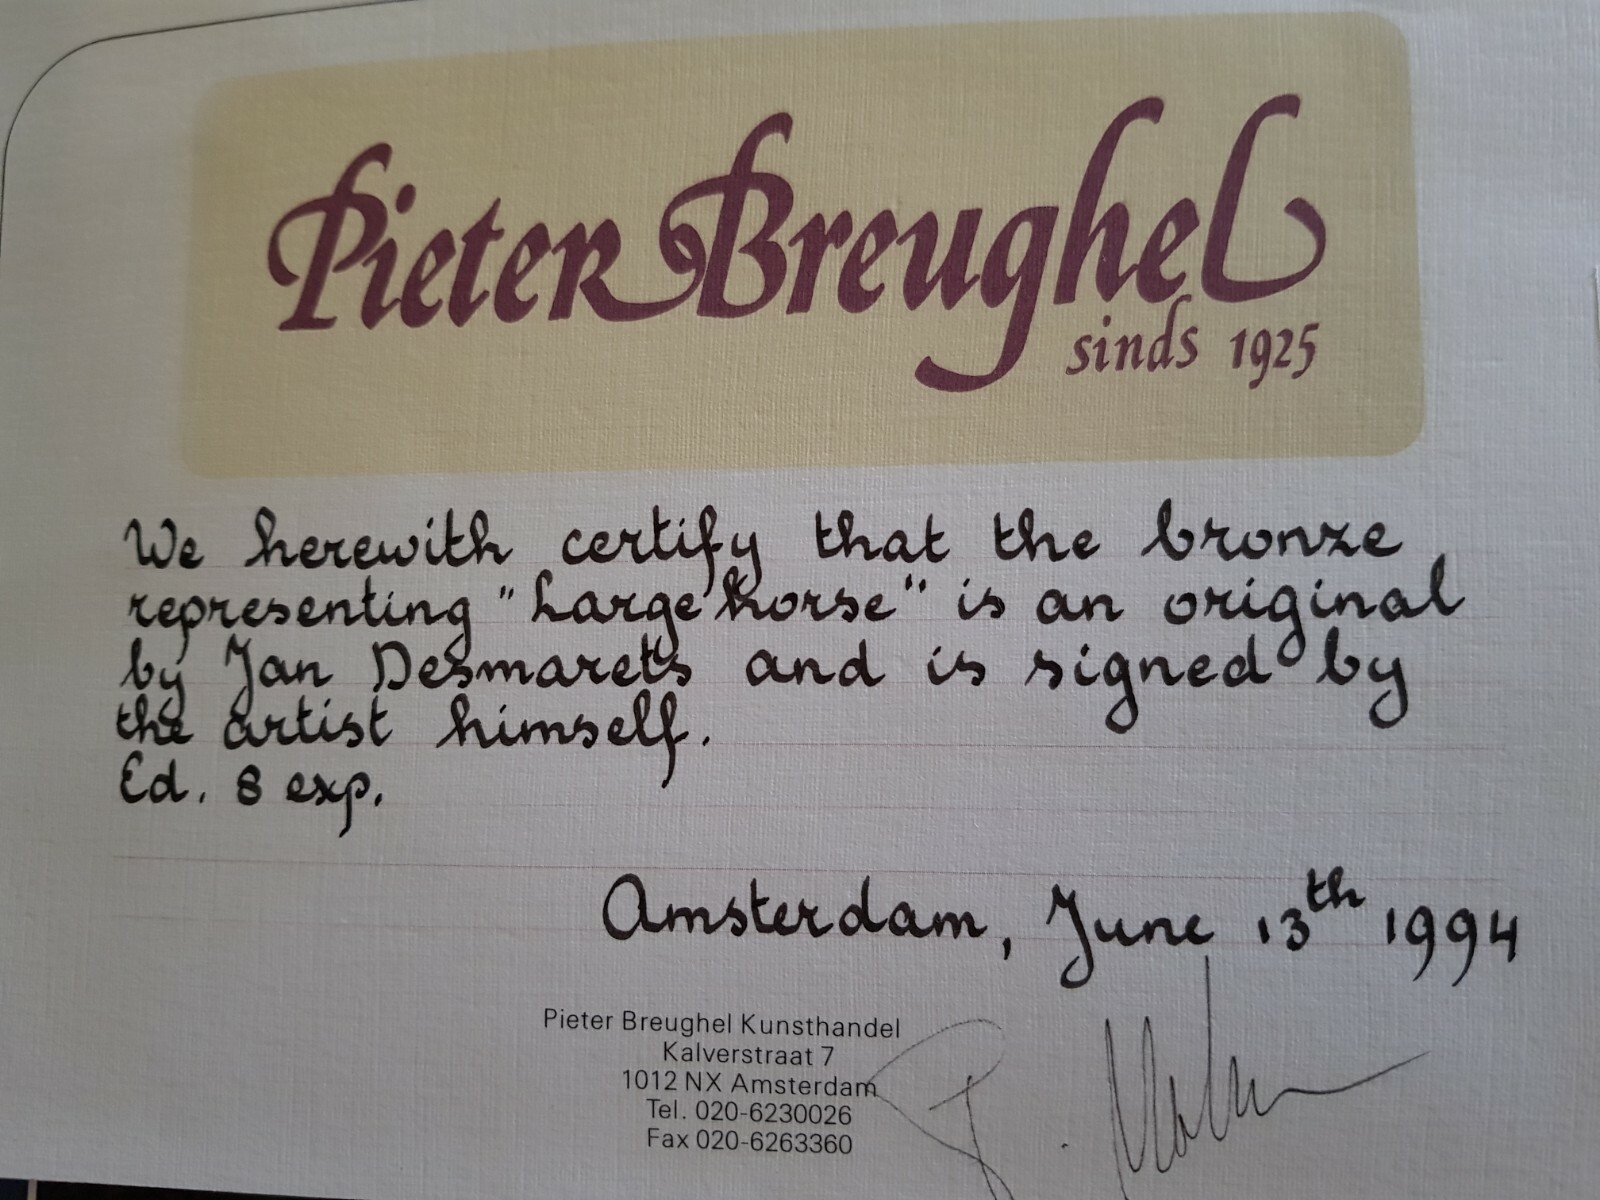 Pieter Breughel
sinds 1925
We herewith certify that the bronze
representing "Large horse" is an original
by Jan Desmarets and is signed by
the artist himself.
Ed. 8 exp.
Amsterdam, June 13th 1994
Pieter Breughel Kunsthandel
Kalverstraat 7
1012 NX Amsterdam
Tel. 020-6230026
Fax 020-6263360